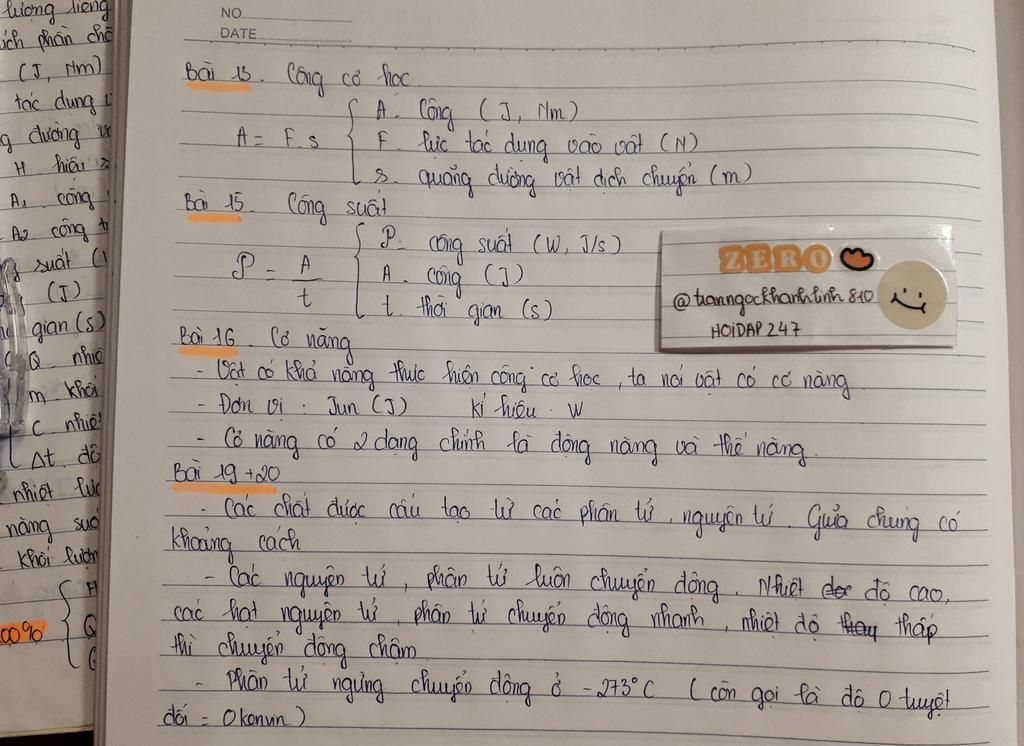 lượng riêng
ích phần chố
(J, Nm)
tác dụng
g đường
H hiệu s
A₁ công
A₂ công t
suất (
(J)
gian (s)
Q nhiệ
m khối
c nhiệt
Δt độ
nhiệt lượ
năng suấ
khối lượn
H
00%
Q
NO
DATE
Bài 13. Công cơ học
A = F.s
A. Công (J, Nm)
F. lực tác dụng vào vật (N)
s. quãng đường vật dịch chuyển (m)
Bài 15. Công suất
P = A/t
P. công suất (W, J/s)
A. công (J)
t. thời gian (s)
ZERO
@tranngockhanhlinh810
HOIDAP247
Bài 16. Cơ năng
- Vật có khả năng thực hiện công cơ học, ta nói vật có cơ năng
- Đơn vị : Jun (J) Kí hiệu . W
- Cơ năng có 2 dạng chính là động năng và thế năng.
Bài 19+20
- Các chất được cấu tạo từ các phân tử, nguyên tử. Giữa chúng có
khoảng cách
- Các nguyên tử, phân tử luôn chuyển động. Nhiệt độ cao,
các hạt nguyên tử, phân tử chuyển động nhanh, nhiệt độ thấp
thì chuyển động chậm
- Phân tử ngừng chuyển động ở -273°C (còn gọi là độ 0 tuyệt
đối = 0 konvin)